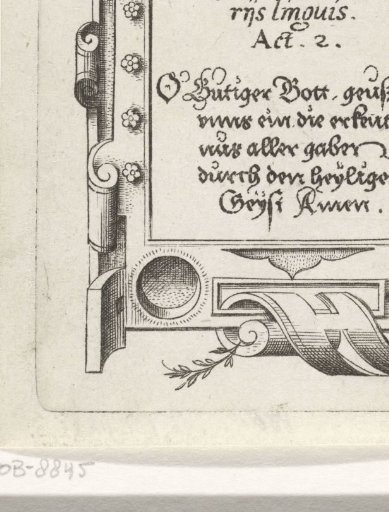 rijs linquis.
Act. 2.
O Gutiger Gott, geuß
vnns ein die erkent
nus aller gaben
durch den heylige
Geyst Amen.
OB-8845